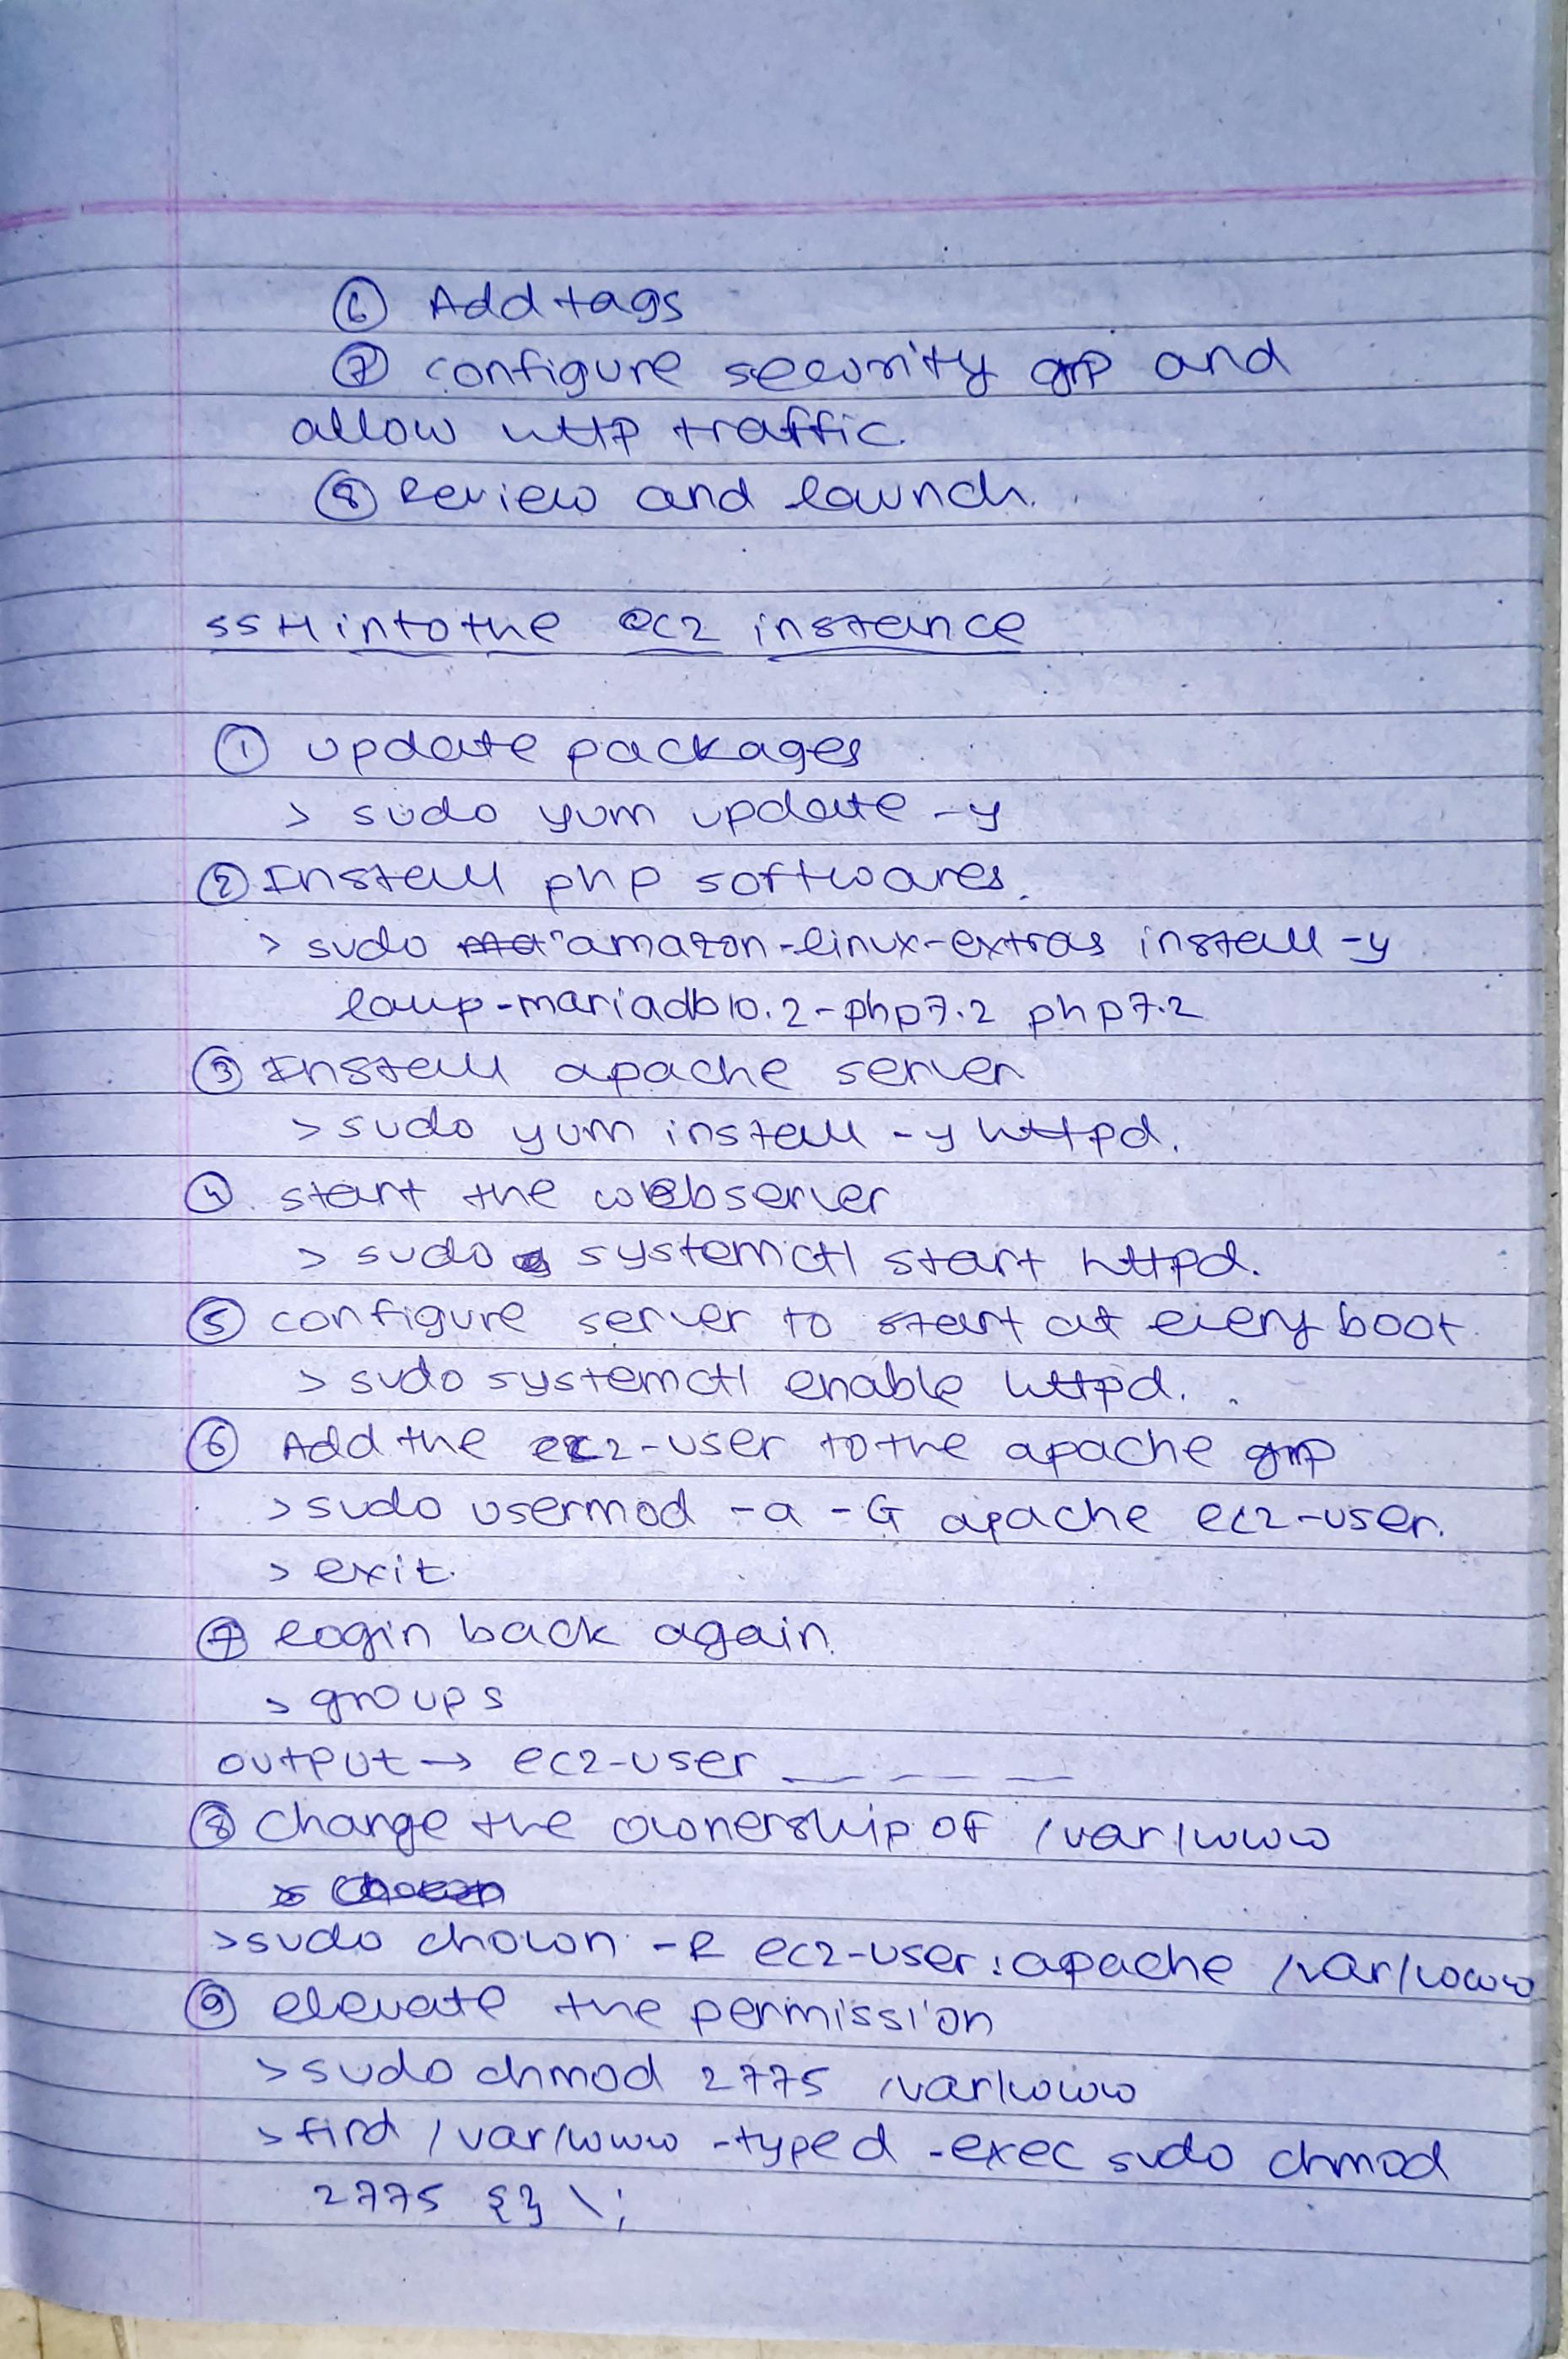 ⑥ Add tags
⑦ configure security grp and
allow http traffic.
⑧ Review and launch.
SSH into the ec2 instance
① update packages
> sudo yum update -y
② Install php softwares.
> sudo amazon-linux-extras install -y
lamp-mariadb10.2-php7.2 php7.2
③ Install apache server
> sudo yum install -y httpd.
④. start the webserver
> sudo systemctl start httpd.
⑤ configure server to start at every boot
> sudo systemctl enable httpd.
⑥ Add the ec2-user to the apache grp
> sudo usermod -a -G apache ec2-user.
> exit.
⑦ login back again.
> groups
output → ec2-user _ _ _ _
⑧ change the ownership of /var/www
> sudo chown -R ec2-user:apache /var/www
⑨ elevate the permission
> sudo chmod 2775 /var/www
> find /var/www -type d -exec sudo chmod
2775 {} \;